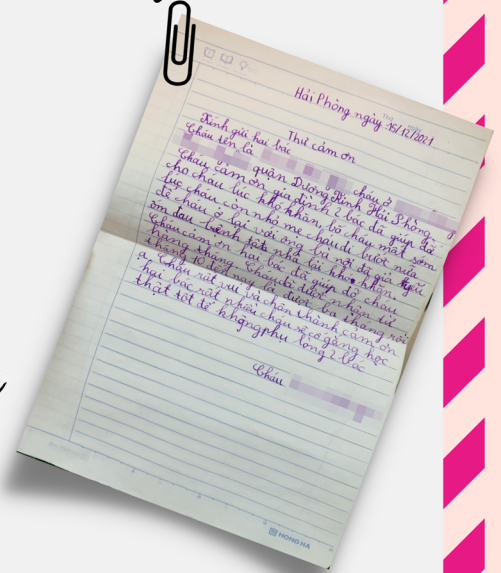 Hải Phòng ngày 15/12/2021
Thư cảm ơn
Kính gửi hai bác
Cháu tên là cháu ở
quận Dương Kinh Hải Phòng.
Cháu cảm ơn gia đình 2 bác đã giúp đỡ
cho cháu lúc khó khăn, bố cháu mất sớm
lúc cháu còn nhỏ mẹ cháu đi bước nữa
để cháu ở lại với ông bà nội đã già yếu
ốm đau bệnh tật nhà lại khó khăn.
Cháu cảm ơn hai bác đã giúp đỡ cháu
hàng tháng. Cháu đã được nhận từ
tháng 10 đến nay là được ba tháng rồi
ạ. Cháu rất vui và chân thành cảm ơn
hai bác rất nhiều cháu sẽ cố gắng học
thật tốt để không phụ lòng 2 bác
Cháu
HONG HA